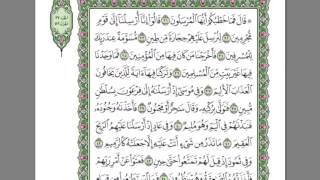 ۞ قَالَ فَمَا خَطْبُكُمْ أَيُّهَا الْمُرْسَلُونَ ٣١ قَالُوا إِنَّا أُرْسِلْنَا إِلَىٰ قَوْمٍ
مُّجْرِمِينَ ٣٢ لِنُرْسِلَ عَلَيْهِمْ حِجَارَةً مِّن طِينٍ ٣٣ مُّسَوَّمَةً عِندَ رَبِّكَ
لِلْمُسْرِفِينَ ٣٤ فَأَخْرَجْنَا مَن كَانَ فِيهَا مِنَ الْمُؤْمِنِينَ ٣٥ فَمَا وَجَدْنَا
فِيهَا غَيْرَ بَيْتٍ مِّنَ الْمُسْلِمِينَ ٣٦ وَتَرَكْنَا فِيهَا آيَةً لِّلَّذِينَ يَخَافُونَ
الْعَذَابَ الْأَلِيمَ ٣٧ وَفِي مُوسَىٰ إِذْ أَرْسَلْنَاهُ إِلَىٰ فِرْعَوْنَ بِسُلْطَانٍ
مُّبِينٍ ٣٨ فَتَوَلَّىٰ بِرُكْنِهِ وَقَالَ سَاحِرٌ أَوْ مَجْنُونٌ ٣٩ فَأَخَذْنَاهُ وَجُنُودَهُ
فَنَبَذْنَاهُمْ فِي الْيَمِّ وَهُوَ مُلِيمٌ ٤٠ وَفِي عَادٍ إِذْ أَرْسَلْنَا عَلَيْهِمُ الرِّيحَ
الْعَقِيمَ ٤١ مَا تَذَرُ مِن شَيْءٍ أَتَتْ عَلَيْهِ إِلَّا جَعَلَتْهُ كَالرَّمِيمِ ٤٢
وَفِي ثَمُودَ إِذْ قِيلَ لَهُمْ تَمَتَّعُوا حَتَّىٰ حِينٍ ٤٣ فَعَتَوْا عَنْ أَمْرِ رَبِّهِمْ